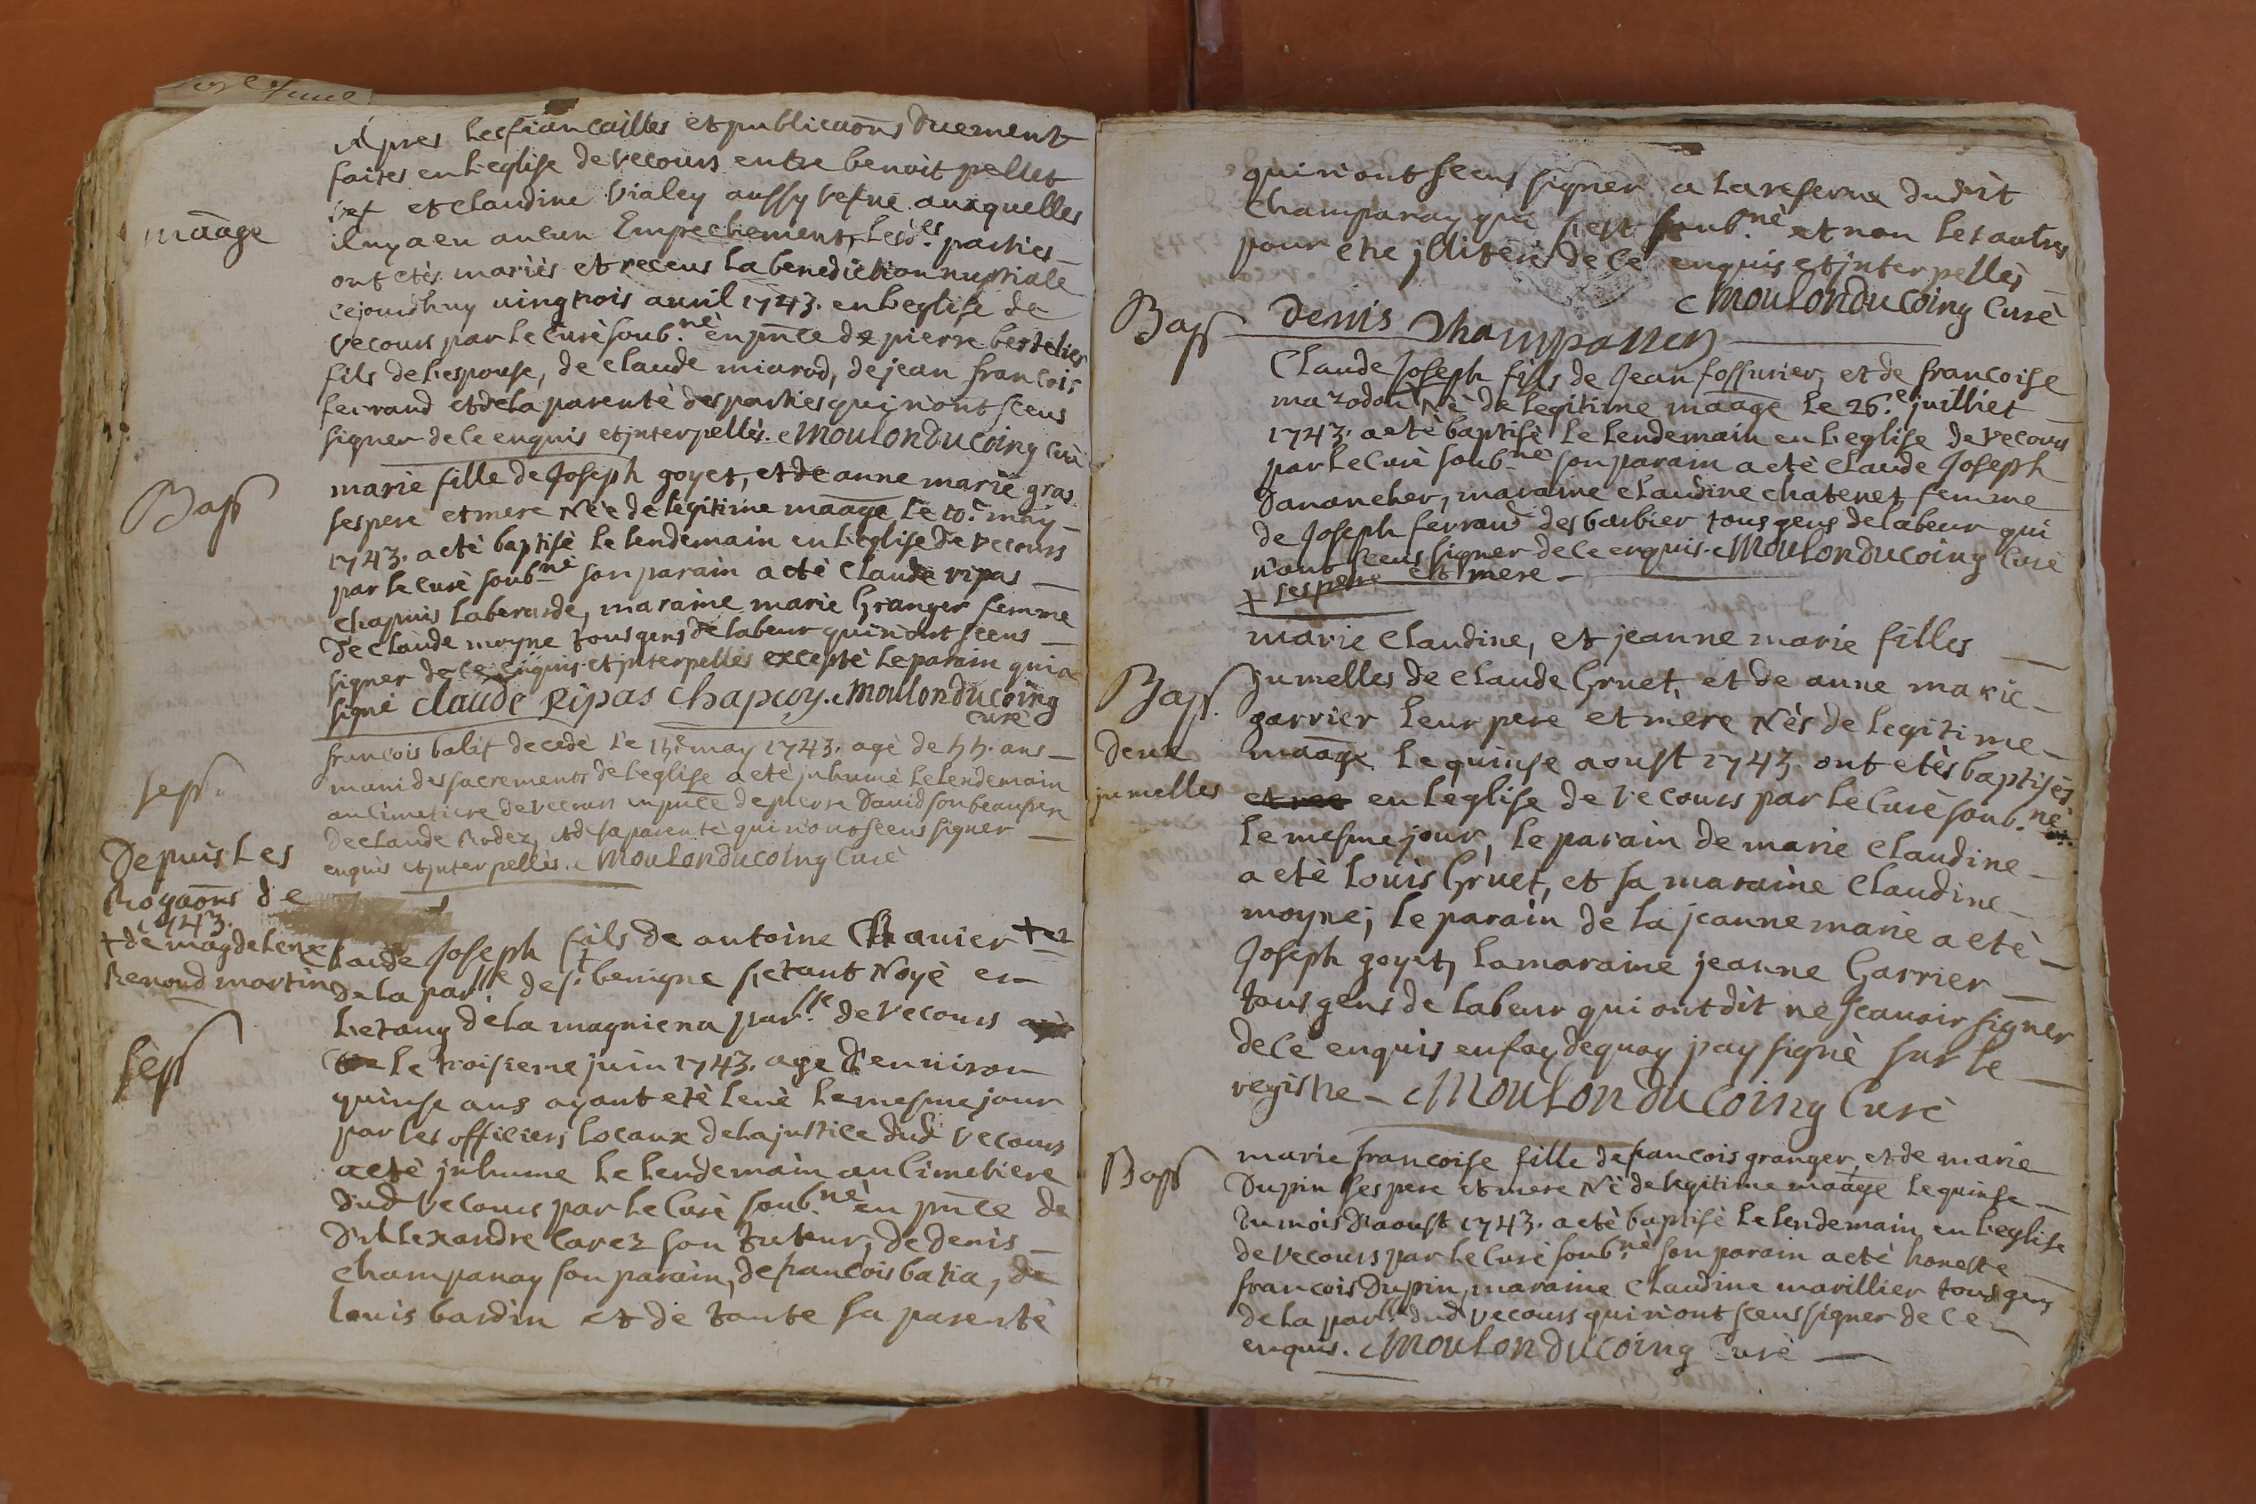 Apres les fiancailles et publicaons duement
faites en l'eglise de vecours entre benoit pellet
vef et claudine vialey aussy vefue auxquelles
maage
il ny a eu aucun Empechement, lesd.es parties
ont etès mariès et receus la benediction nuptiale
cejourdhuy vingtrois auril 1743. en l'eglise de
vecours par le curé soub.né en pnce de pierre berthelier
fils de l'espouse, de claude miarod, de jean francois
ferrand et de la parentè des parties qui n'ont sceus
signer de ce enquis et jnterpellès. Moulonducoing curè
Bap
marie fille de Joseph goyet, et de anne marie gras
ses pere et mere Née de legitime maage le 10.e may
1743. a etè baptisè le lendemain en l'eglise de vecours
par le curè soub.né son parain a etè claude ripas
chapuis laberarde, maraine marie Granger femme
de claude moyne tous gens de labeur qui n'ont sceus
signer de ce enquis et jnterpellès exceptè le parain qui a
signè claude Ripas chapuy. Moulonducoing
curè
sep
francois balif decedè le may 1743. agè de ans
muni des sacrements de l'eglise a etè jnhumè le lendemain
au cimetiere de vecours en pnce de pierre David son beaupere
de claude Rodez, et de sa parentè qui n'ont sceus signer
enquis et jnterpellès. Moulonducoing Curè
Depuis les
Rogaons de
1743.
+ de magdelene
Renoud martin
Claude Joseph fils de antoine Chanier + et
de la par.sse de s.t benigne s'etant Noyè en
l'etang de la magniena par.sse de vecours
sep
le troisieme juin 1743. age d'enuiron
quinse ans ayant etè leuè le mesme jour
par les officiers locaux de la justice dud vecours
a etè jnhume le lendemain au cimetiere
dud vecours par le Curè soub.nè en pnce de
d'Allexandre Carez son tuteur, de denis
champanay son parain, de francois batia, de
louis bardin et de toute sa parentè
qui n'ont sceus signer a la reserue dudit
champanay qui s'est soub.nè et non les autres
pour etre jlliterè de ce enquis et jnterpellès
Moulonducoing Curè
denis champanay
Bap
Claude Joseph fils de Jean fossurier, et de francoise
mazodou Nè de legitime maage le 26.e juilliet
1743. a etè baptisè le lendemain en l'eglise de vecours
par le Curè soub.nè son parain a etè claude Joseph
Danancher, maraine claudine chatenet femme
de Joseph ferrand des barbier tous gens de labeur qui
n'ont sceus signer de ce enquis. Moulonducoing Curè
+ ses pere et mere
marie Claudine, et jeanne marie filles
Bap.
deux
jumelles
Jumelles de claude Gruet, et de anne marie
garrier leur pere et mere Nès de legitime
maage le quinse aoust 1743. ont etès baptisés
en l'eglise de vecours par le Curè soub.nè
le mesme jour, le parain de marie claudine
a etè louis Gruet, et sa maraine claudine
moyne; le parain de la jeanne marie a etè
Joseph goyet, la maraine jeanne Garrier
tous gens de labeur qui ont dit ne scauoir signer
de ce enquis en foy de quoy jay signè sur le
registre Moulonducoing Curè
Bap
marie francoise fille de francois granger, et de marie
Dupin ses pere et mere Nè de legitime maage le quinse
du mois d'aoust 1743. a etè baptisè le lendemain en l'eglise
de vecours par le Curè soub.nè son parain a etè honeste
francois Dupin, maraine Claudine marillier tous gens
de la par.sse dud vecours qui n'ont sceus signer de ce
enquis. Moulonducoing Curè